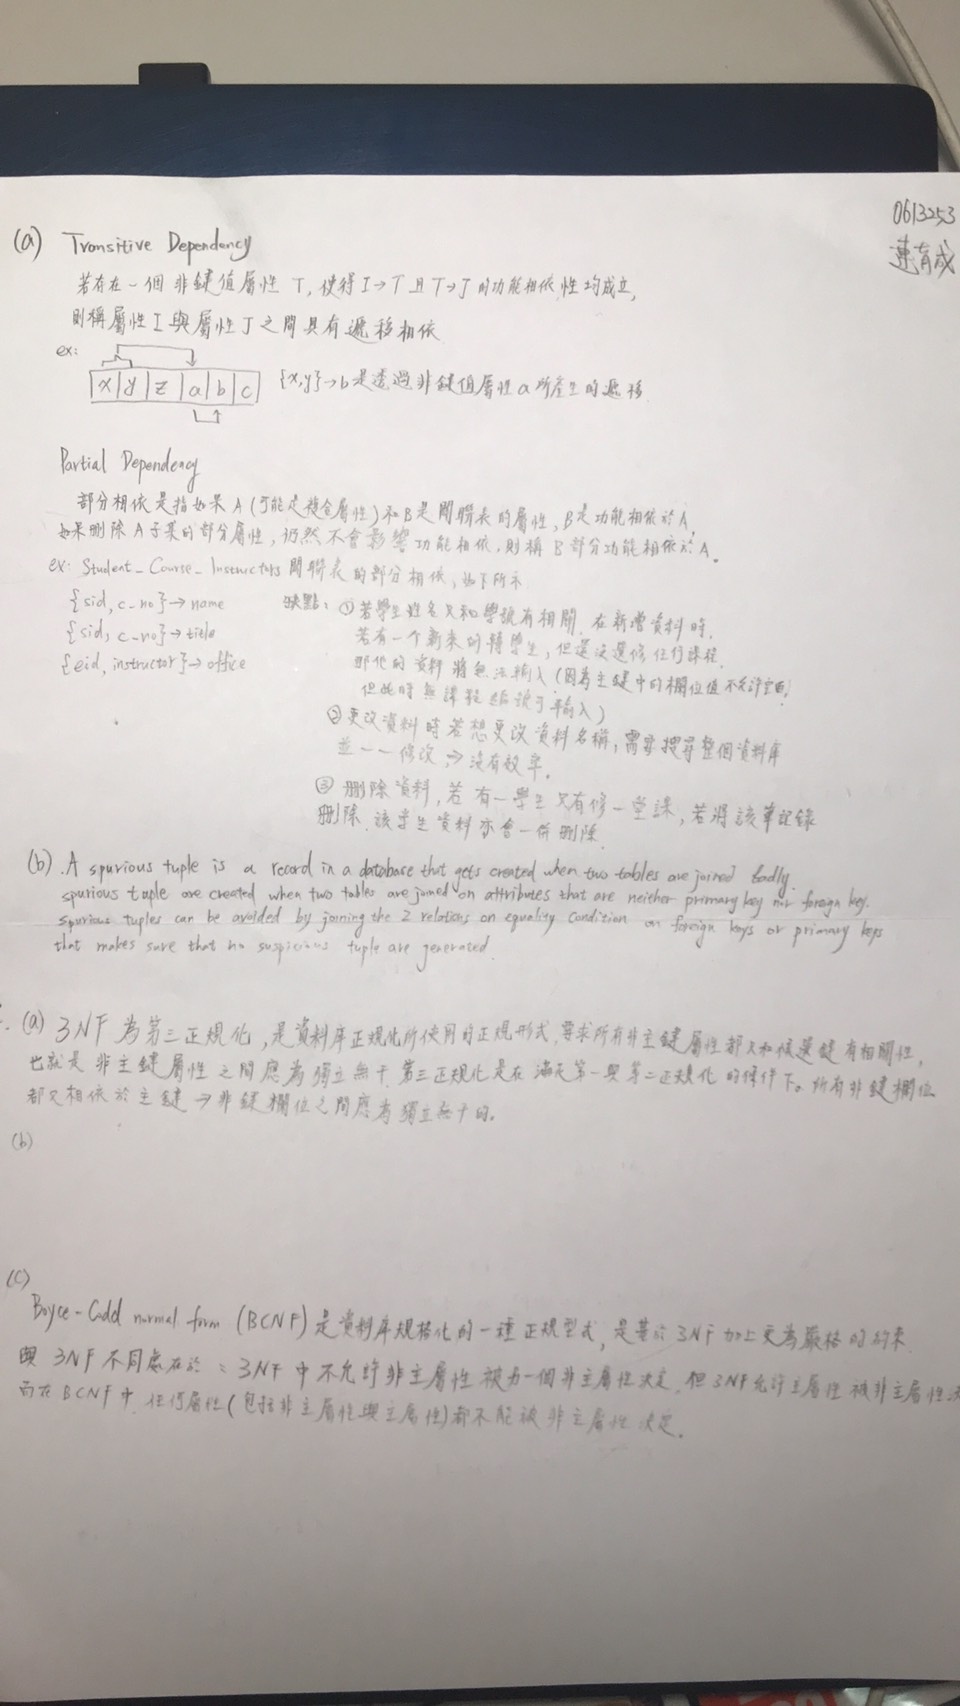 0613253
連育成
(a) Transitive Dependency
若存在一個非鍵值屬性 T, 使得 I→T 且 T→J 的功能相依性均成立,
則稱屬性 I 與屬性 J 之間具有遞移相依
ex:
x|y|z|a|b|c {x,y}→b 是透過非鍵值屬性 a 所產生的遞移
Partial Dependency
部分相依是指如果 A (可能是複合屬性) 和 B 是關聯表的屬性, B 是功能相依於 A,
如果刪除 A 子集的部分屬性, 仍然不會影響功能相依, 則稱 B 部分功能相依於 A。
ex: Student_Course_Instructors 關聯表的部分相依, 如下所示
{sid, c_no}→name
{sid, c_no}→title
{eid, instructor}→office
缺點: ①若學生姓名又和學號有相關, 在新增資料時,
若有一个新來的轉學生, 但還沒選修任何課程,
那他的資料將無法輸入 (因為主鍵中的欄位值不允許空白,
但此時無課程編號可輸入)
②更改資料時若想更改資料名稱, 需要搜尋整個資料庫
並一一修改, → 沒有效率。
③ 刪除資料, 若有一學生只有修一堂課, 若將該筆記錄
刪除, 該學生資料亦會一併刪除.
(b). A spurious tuple is a record in a database that gets created when two tables are joined badly.
spurious tuple are created when two tables are joined on attributes that are neither primary key nor foreign key.
spurious tuples can be avoided by joining the 2 relations on equality condition on foreign keys or primary keys
that makes sure that no suspicious tuple are generated.
(a) 3NF 為第三正規化, 是資料庫正規化所使用的正規形式, 要求所有非主鍵屬性都只和候選鍵有相關性,
也就是非主鍵屬性之間應為獨立無干. 第三正規化是在滿足第一與第二正規化的條件下。所有非鍵欄位
都只相依於主鍵 → 非鍵欄位之間應為獨立無干的。
(b)
(c)
Boyce-Codd normal form (BCNF) 是資料庫規格化的一種正規型式, 是基於 3NF 加上更為嚴格的約束.
與 3NF 不同處在於: 3NF 中不允許非主屬性被另一個非主屬性決定, 但 3NF 允許主屬性被非主屬性決
而在 BCNF 中, 任何屬性 (包括非主屬性與主屬性) 都不能被非主屬性決定.